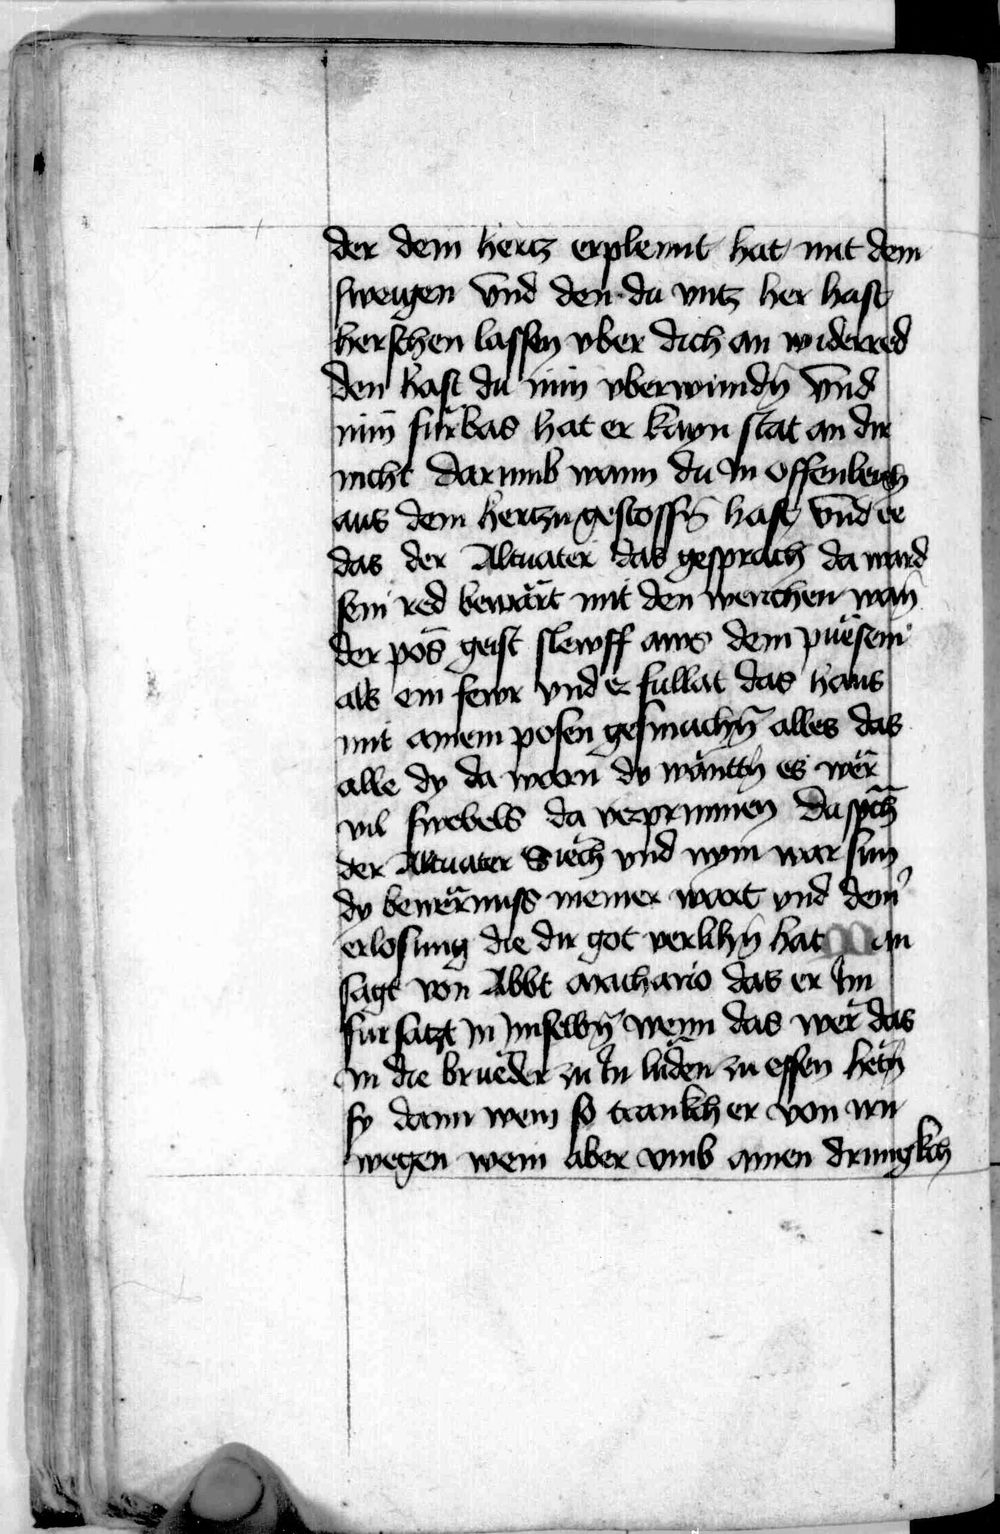 der dem hertz erplennt hat mit dem
sweigen vnd den du vntz her hast
herschen lassen vber dich an widerred
den hast du nun vberwundn̄ vnd
nun fürbas hat er kayn stat an dir
nicht darumb wann du In offenbern̄
aus dem hertzn gestossn̄ hast vnd ee
das der Altuater das gesprach da ward
sein red bewärt mit den werichen wan̄
der pös geist slewff aws dem püesem
als ein fewr vnd er fullat das haus
mit ainem posen gesmachn̄ alles das
alle dy da warn dy wäntn̄ es wër
vil swebels da verprunnen Da sp̄ch
der Altuater Siech vnd nym war sun
dy bewërnuss meiner wort vnd dein̄
erlosung die dir got verlihn̄ hat Man
sagt von Abbt Machario das er Im
fur satzt in Imselbn̄ wenn das wër das
in die brüeder zu In lüden zu essen hetn̄
sy dann wein so trankch er von irn
wegen wein aber vmb ainen drungkch